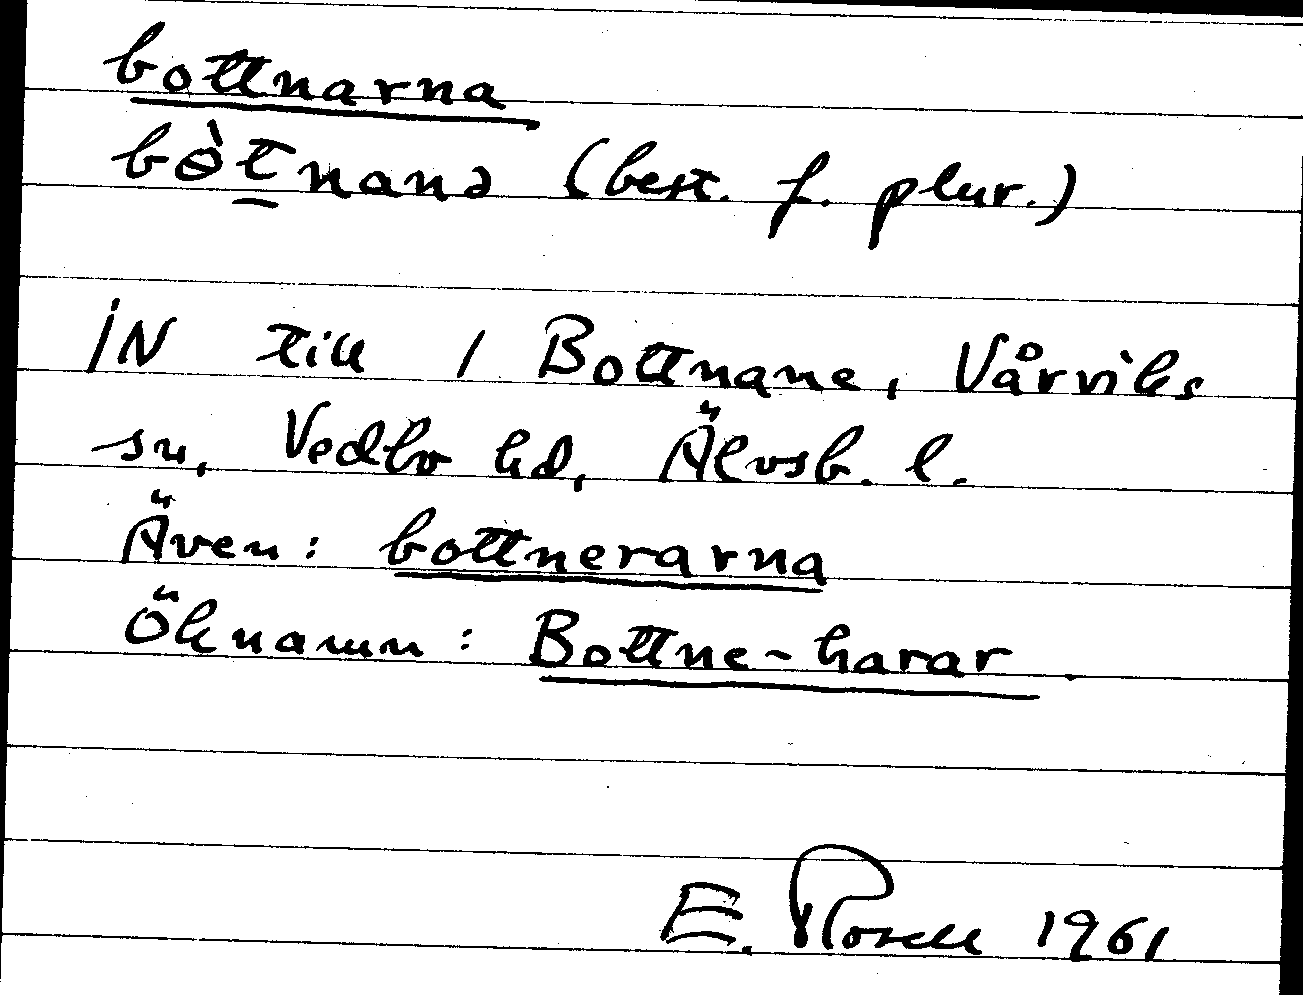 bottnarna
bòt̲nanə (best. f. plur.)
IN till / Bottnane, Vårviks
sn, Vedbo hd, Älvsb. l.
Även: bottnerarna
Öknamn: Bottne-harar
E. Rosell 1961